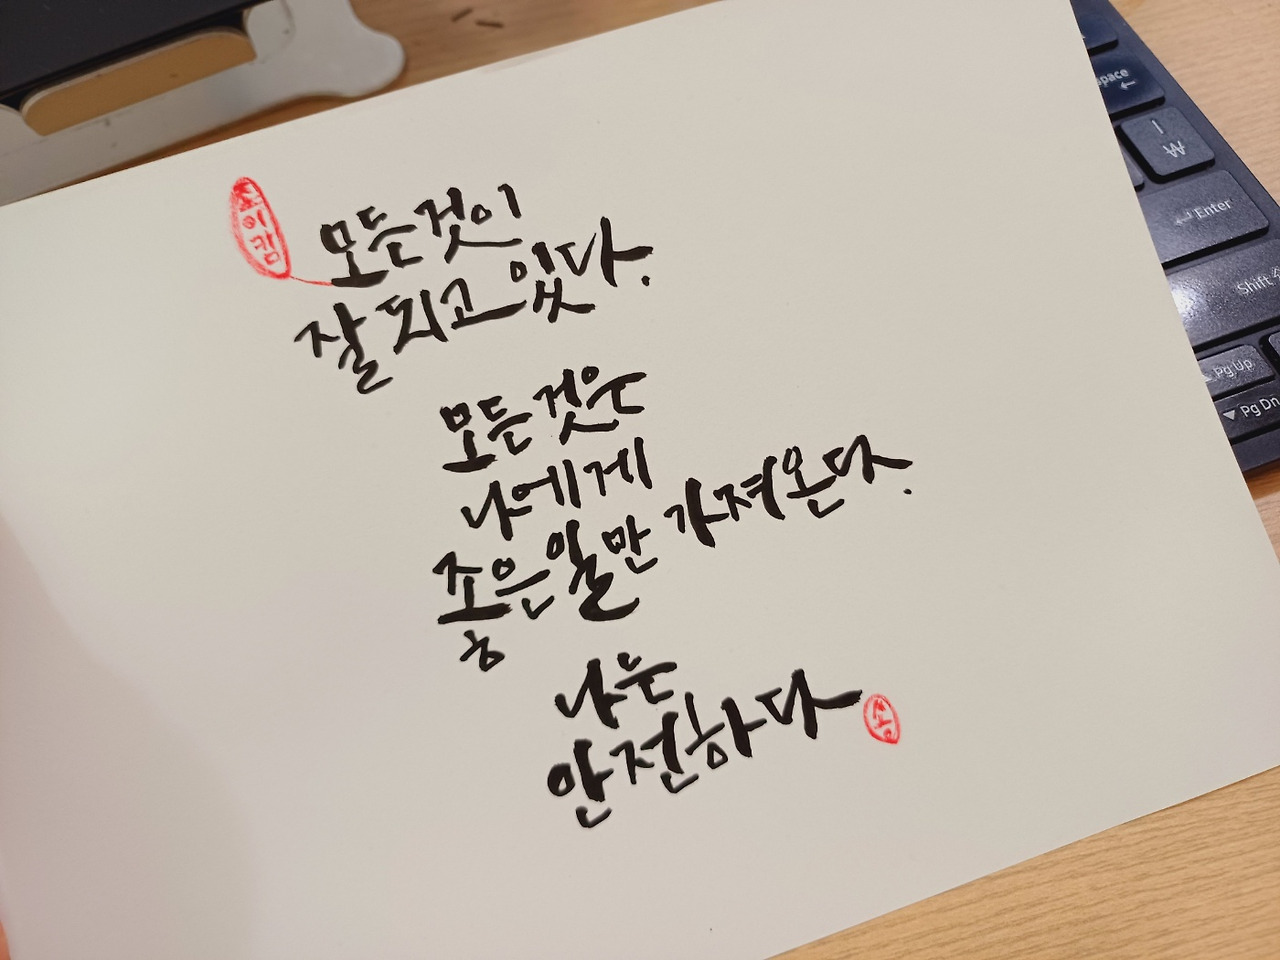 모든것이
잘 되고 있다.
모든것은
나에게
좋은일만 가져온다.
나는
안전하다
송
space
←
|
₩
Enter
Shift
Pg Up
▼ Pg Dn